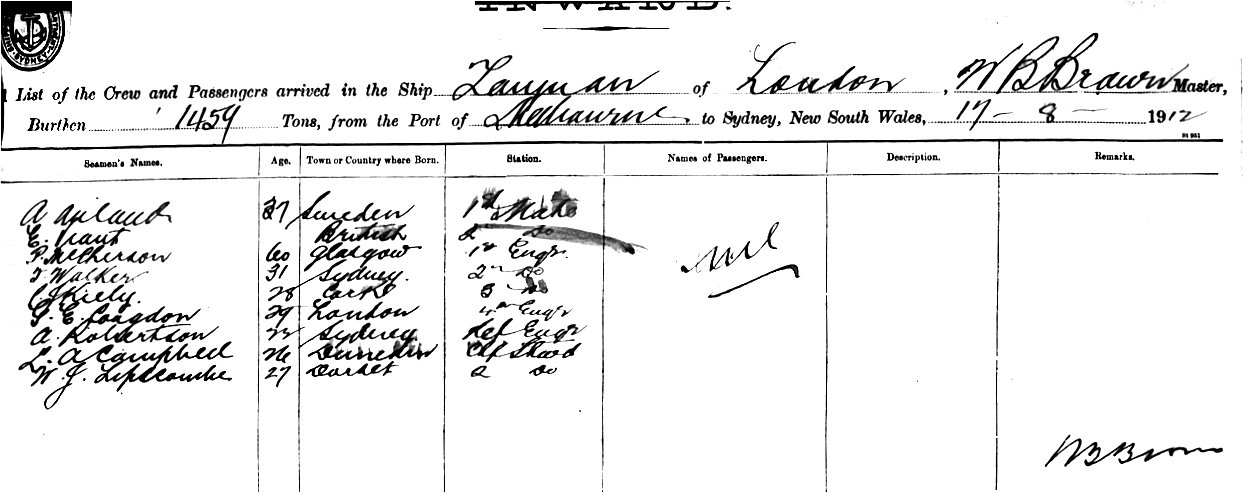 INWARD.
List of the Crew and Passengers arrived in the Ship Taiyuan of London, W B Brown Master,
Burthen 1459 Tons, from the Port of Melbourne to Sydney, New South Wales, 17 - 8 - 1912
Seamen's Names. Age. Town or Country where Born. Station. Names of Passengers. Description. Remarks.
A 37 Sweden 1st Mate
E. British 2 Do
P. McPherson 60 Glasgow 1st Engr. Nil
T Walker 31 Sydney. 2nd Do
C Shiely. 28 Cork 3 Do
E. Langdon 29 London 4th Engr
A. Robertson Sydney Ref Engr
L. A Campbell 26 Dunedin Chf Steward
W. J. Lipscombe 27 Dorset 2 Do
W B Brown